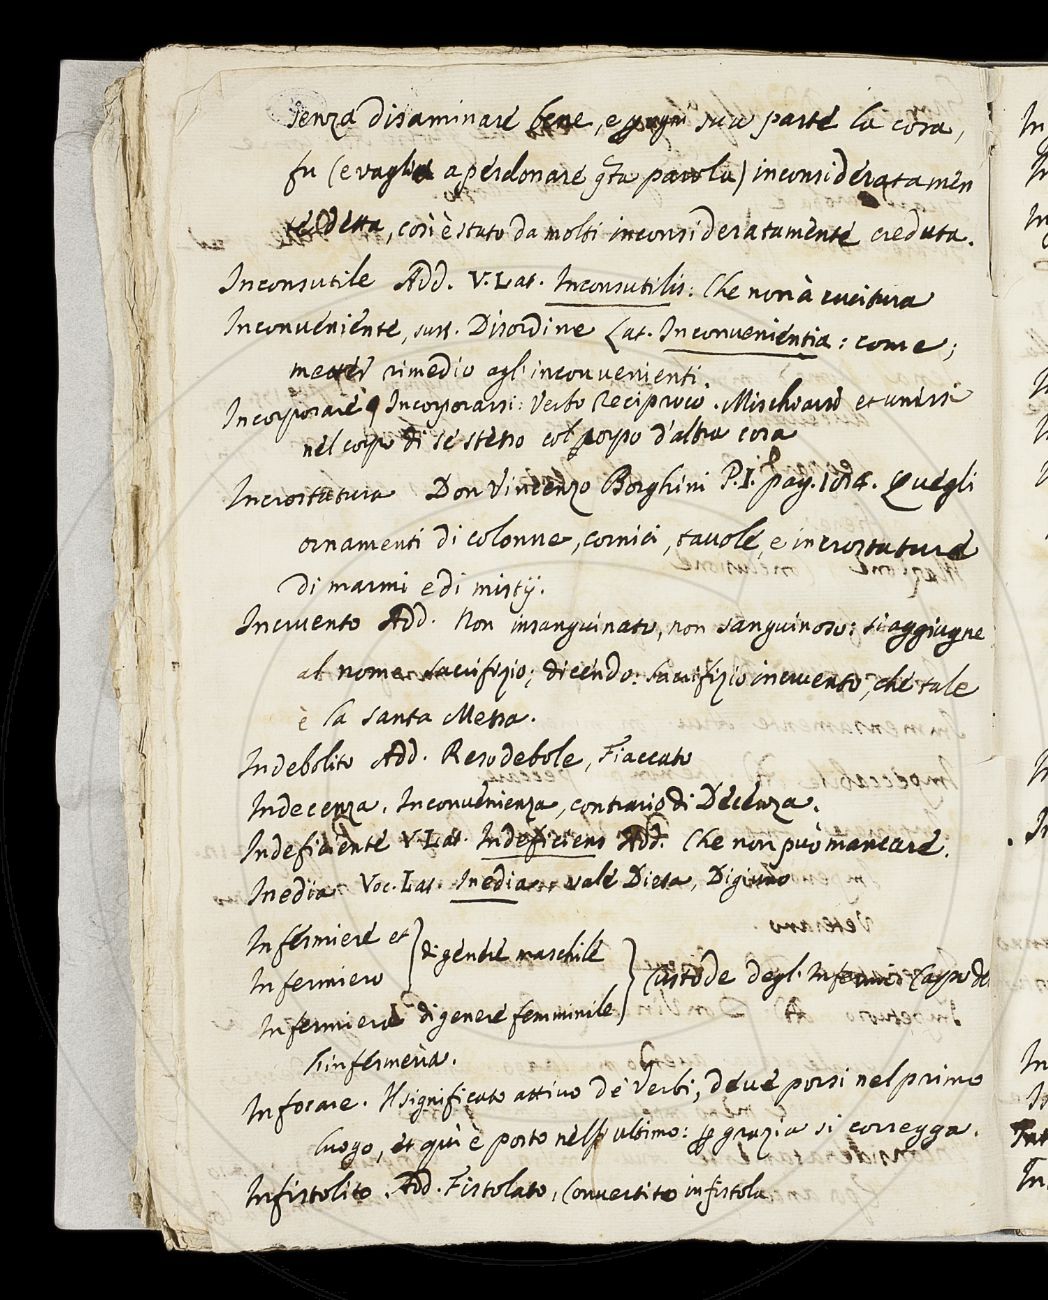 senza disaminare bene, e p ogni sua parte la cosa,
fu (e vaglia a perdonare q.ta parola) inconsideratamen
te detta, così è stato da molti inconsideratamente creduta.
Inconsutile Add. V. Lat. Inconsutilis: Che non à cucitura
Inconveniente, sust. Disordine Lat. Inconvenientia: come;
metter rimedio agl'inconvenienti.
Incorporare, Incorporarsi: Verbo Reciproco. Mischiarsi et unirsi
nel corpo di se stesso col corpo d'altra cosa
Incrostatura Don Vincenzo Borghini P.I. pag. 104. Quegli
ornamenti di colonne, cornici, tavole, e incrostature
di marmi e di mistij.
Incruento Add. Non insanguinato, non sanguinoso: si aggiugne
al nome sacrifizio; dicendo: sacrifizio incruento, ché tale
è la santa Messa.
Indebolito Add. Reso debole, Fiaccato
Indecenza. Inconvenienza, contrario di Decenza.
Indeficiente V. Lat. Indeficiens Add. Che non può mancare.
Inedia Voc. Lat. Inedia vale Dieta, Digiuno
Infermiere et
Infermiero
di genere maschile
Infermiera di genere femminile
Custode degl'Infermi Capo de
l'infermeria.
Infocare. Il significato attivo de' Verbi, deve porsi nel primo
luogo, et qui è posto nell'ultimo: p grazia si corregga.
Infistolito. Add. Fistolato, Convertito in fistola